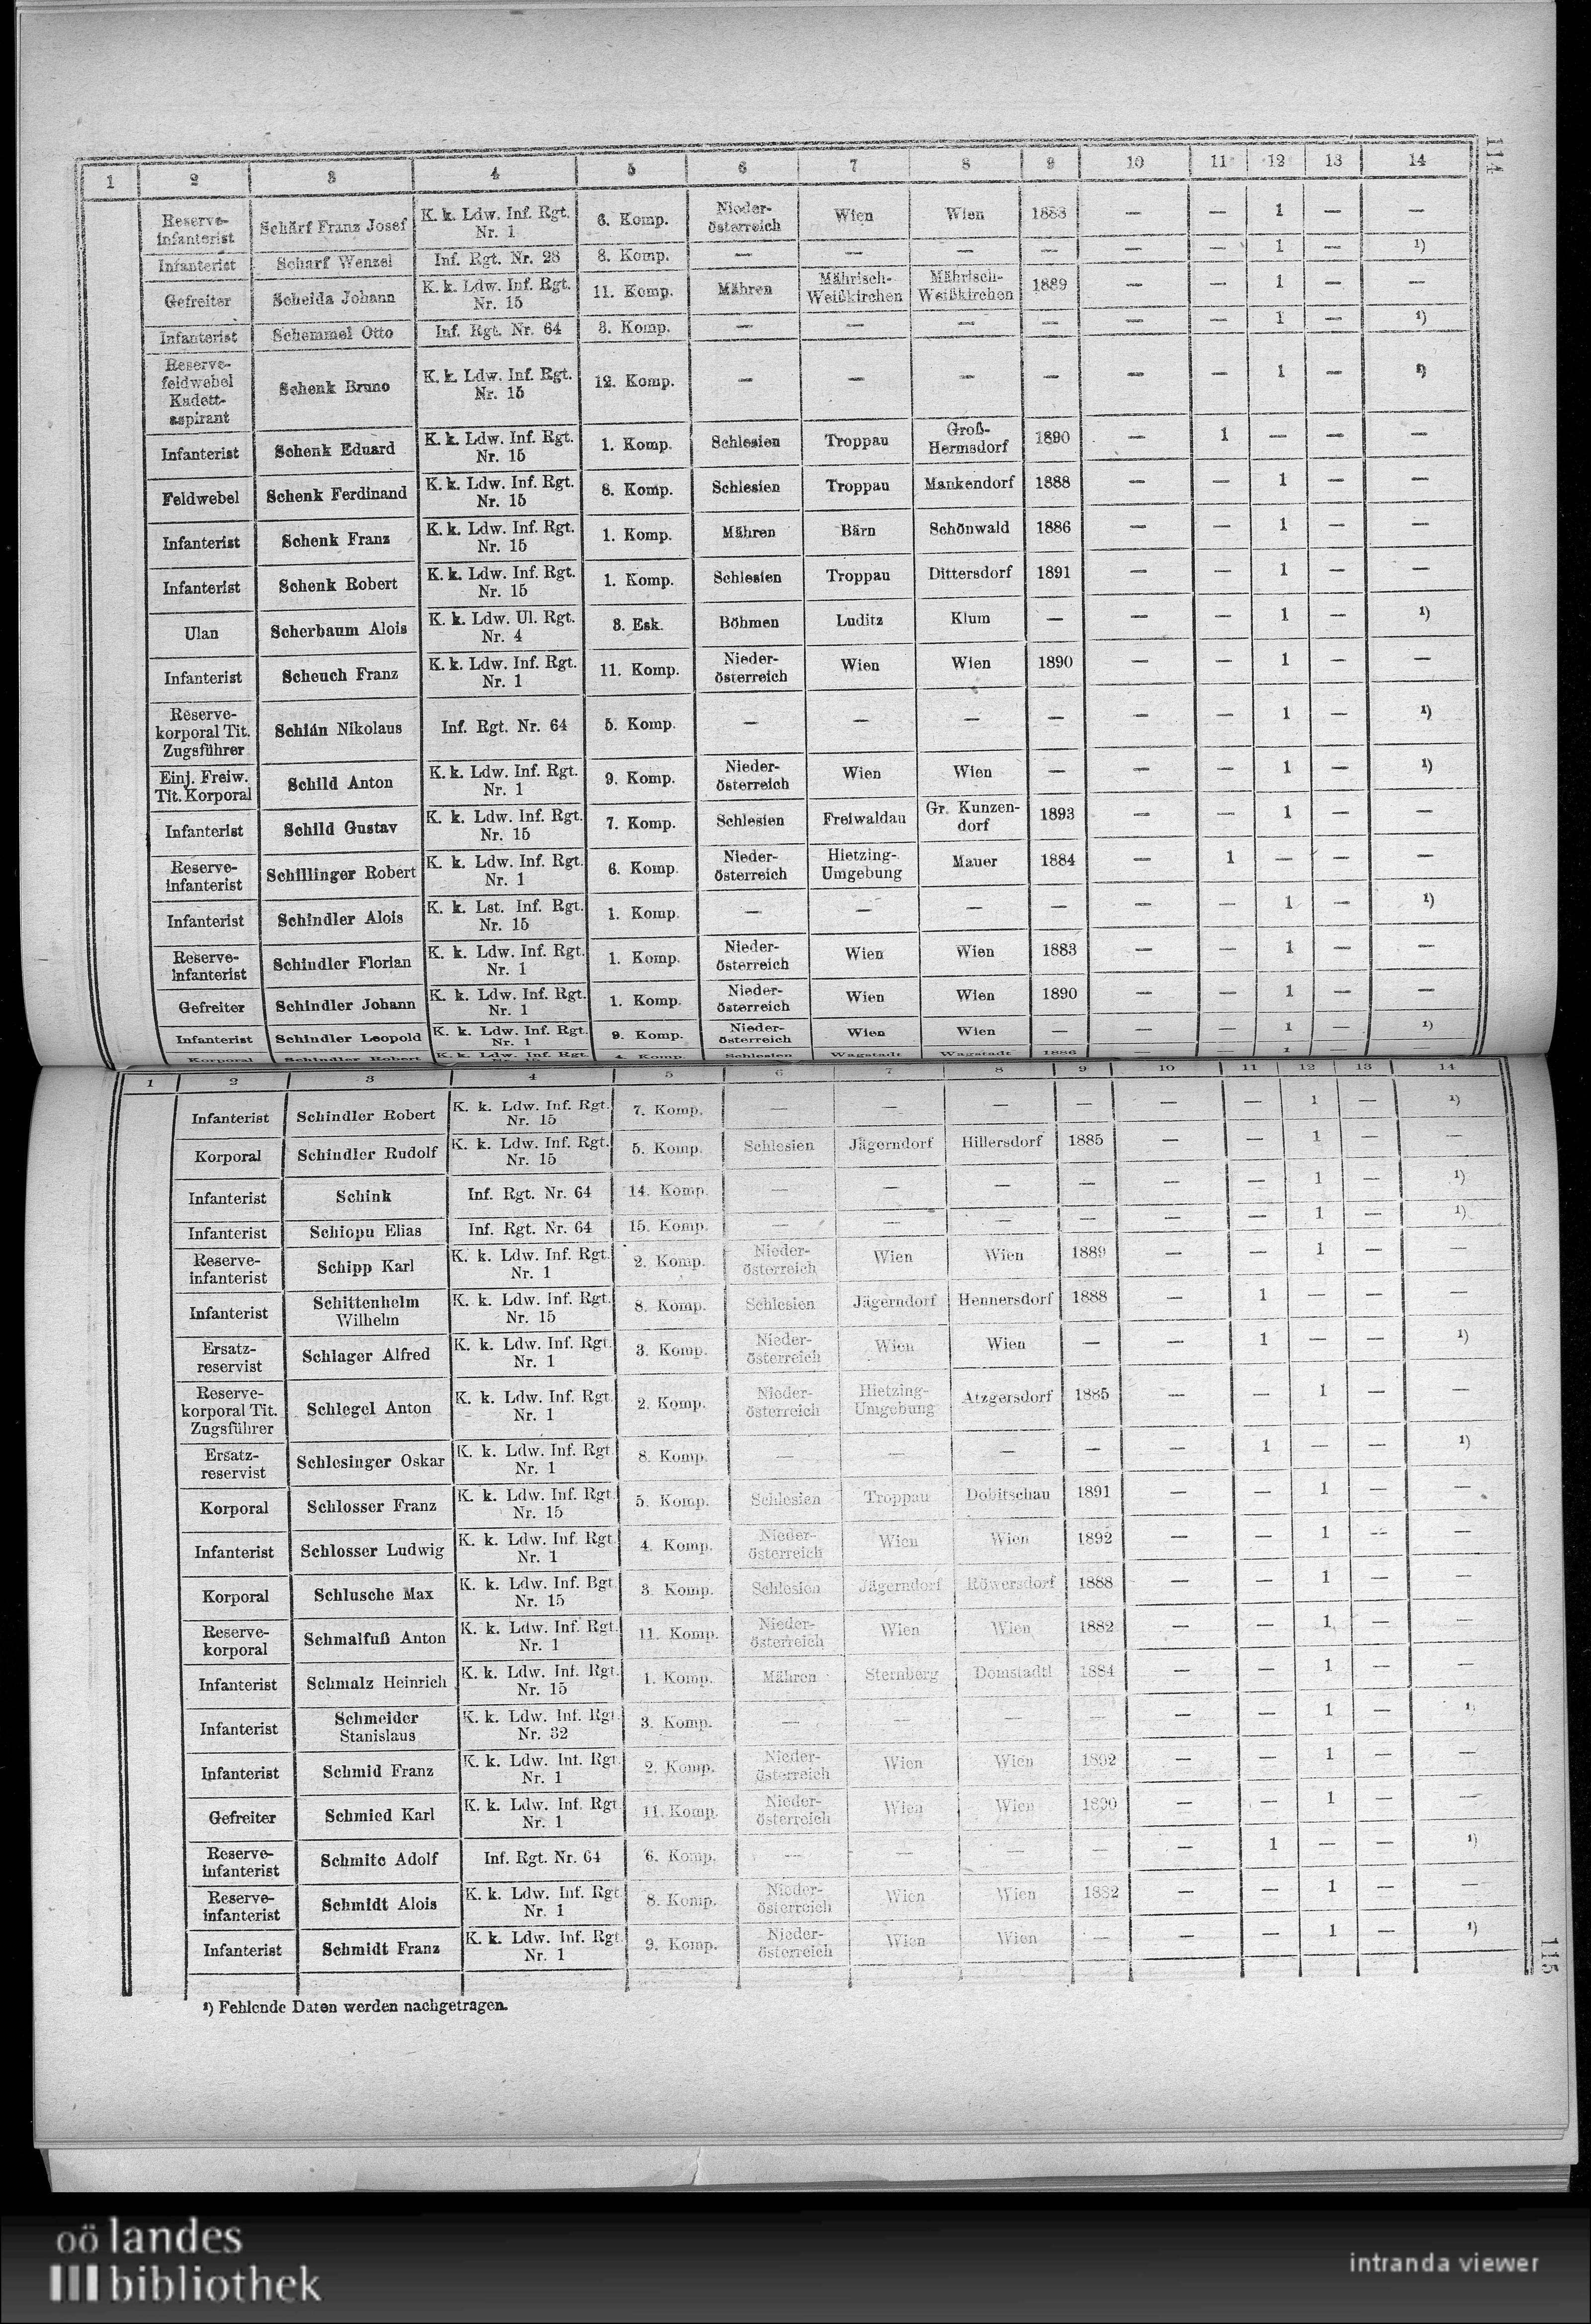 114
1 2 3 4 5 6 7 8 9 10 11 12 13 14
Reserve-infanterist Schärf Franz Josef K. k. Ldw. Inf. Rgt. Nr. 1 6. Komp. Nieder-österreich Wien Wien 1883 — — 1 — —
Infanterist Scharf Wenzel Inf. Rgt. Nr. 28 8. Komp. — — — — — — 1 — ¹)
Gefreiter Scheida Johann K. k. Ldw. Inf. Rgt. Nr. 15 11. Komp. Mähren Mährisch-Weißkirchen Mährisch-Weißkirchen 1889 — — 1 — —
Infanterist Schemmel Otto Inf. Rgt. Nr. 64 3. Komp. — — — — — — 1 — ¹)
Reserve-feldwebel Kadett-aspirant Schenk Bruno K. k. Ldw. Inf. Rgt. Nr. 15 12. Komp. — — — — — — 1 — ¹)
Infanterist Schenk Eduard K. k. Ldw. Inf. Rgt. Nr. 15 1. Komp. Schlesien Troppau Groß-Hermsdorf 1890 — 1 — — —
Feldwebel Schenk Ferdinand K. k. Ldw. Inf. Rgt. Nr. 15 8. Komp. Schlesien Troppau Mankendorf 1888 — — 1 — —
Infanterist Schenk Franz K. k. Ldw. Inf. Rgt. Nr. 15 1. Komp. Mähren Bärn Schönwald 1886 — — 1 — —
Infanterist Schenk Robert K. k. Ldw. Inf. Rgt. Nr. 15 1. Komp. Schlesien Troppau Dittersdorf 1891 — — 1 — —
Ulan Scherbaum Alois K. k. Ldw. Ul. Rgt. Nr. 4 3. Esk. Böhmen Luditz Klum — — — 1 — ¹)
Infanterist Scheuch Franz K. k. Ldw. Inf. Rgt. Nr. 1 11. Komp. Nieder-österreich Wien Wien 1890 — — 1 — —
Reserve-korporal Tit. Zugsführer Schián Nikolaus Inf. Rgt. Nr. 64 5. Komp. — — — — — — 1 — ¹)
Einj. Freiw. Tit. Korporal Schild Anton K. k. Ldw. Inf. Rgt. Nr. 1 9. Komp. Nieder-österreich Wien Wien — — — 1 — ¹)
Infanterist Schild Gustav K. k. Ldw. Inf. Rgt. Nr. 15 7. Komp. Schlesien Freiwaldau Gr. Kunzen-dorf 1893 — — 1 — —
Reserve-infanterist Schillinger Robert K. k. Ldw. Inf. Rgt. Nr. 1 6. Komp. Nieder-österreich Hietzing-Umgebung Mauer 1884 — 1 — — —
Infanterist Schindler Alois K. k. Lst. Inf. Rgt. Nr. 15 1. Komp. — — — — — — 1 — ¹)
Reserve-infanterist Schindler Florian K. k. Ldw. Inf. Rgt. Nr. 1 1. Komp. Nieder-österreich Wien Wien 1883 — — 1 — —
Gefreiter Schindler Johann K. k. Ldw. Inf. Rgt. Nr. 1 1. Komp. Nieder-österreich Wien Wien 1890 — — 1 — —
Infanterist Schindler Leopold K. k. Ldw. Inf. Rgt. Nr. 1 9. Komp. Nieder-österreich Wien Wien — — — 1 — ¹)
Korporal Schindler Robert K. k. Ldw. Inf. Rgt. 4. Komp. Schlesien Wagstadt Wagstadt 1886 — — 1 — —
1 2 3 4 5 6 7 8 9 10 11 12 13 14
Infanterist Schindler Robert K. k. Ldw. Inf. Rgt. Nr. 15 7. Komp. — — — — — — 1 — ¹)
Korporal Schindler Rudolf K. k. Ldw. Inf. Rgt. Nr. 15 5. Komp. Schlesien Jägerndorf Hillersdorf 1885 — — 1 — —
Infanterist Schink Inf. Rgt. Nr. 64 14. Komp. — — — — — — 1 — ¹)
Infanterist Schiopu Elias Inf. Rgt. Nr. 64 15. Komp. — — — — — — 1 — ¹)
Reserve-infanterist Schipp Karl K. k. Ldw. Inf. Rgt. Nr. 1 2. Komp. Nieder-österreich Wien Wien 1889 — — 1 — —
Infanterist Schittenhelm Wilhelm K. k. Ldw. Inf. Rgt. Nr. 15 8. Komp. Schlesien Jägerndorf Hennersdorf 1888 — 1 — — —
Ersatz-reservist Schlager Alfred K. k. Ldw. Inf. Rgt. Nr. 1 3. Komp. Nieder-österreich Wien Wien — — 1 — — ¹)
Reserve-korporal Tit. Zugsführer Schlegel Anton K. k. Ldw. Inf. Rgt. Nr. 1 2. Komp. Nieder-österreich Hietzing-Umgebung Atzgersdorf 1885 — — 1 — —
Ersatz-reservist Schlesinger Oskar K. k. Ldw. Inf. Rgt. Nr. 1 8. Komp. — — — — — 1 — — ¹)
Korporal Schlosser Franz K. k. Ldw. Inf. Rgt. Nr. 15 5. Komp. Schlesien Troppau Dobitschau 1891 — — 1 — —
Infanterist Schlosser Ludwig K. k. Ldw. Inf. Rgt. Nr. 1 4. Komp. Nieder-österreich Wien Wien 1892 — — 1 — —
Korporal Schlusche Max K. k. Ldw. Inf. Rgt. Nr. 15 3. Komp. Schlesien Jägerndorf Röwersdorf 1888 — — 1 — —
Reserve-korporal Schmalfuß Anton K. k. Ldw. Inf. Rgt. Nr. 1 11. Komp. Nieder-österreich Wien Wien 1882 — — 1 — —
Infanterist Schmalz Heinrich K. k. Ldw. Inf. Rgt. Nr. 15 1. Komp. Mähren Sternberg Domstadtl 1884 — — 1 — —
Infanterist Schmeider Stanislaus K. k. Ldw. Inf. Rgt. Nr. 32 3. Komp. — — — — — — 1 — ¹)
Infanterist Schmid Franz K. k. Ldw. Inf. Rgt. Nr. 1 2. Komp. Nieder-österreich Wien Wien 1892 — — 1 — —
Gefreiter Schmied Karl K. k. Ldw. Inf. Rgt. Nr. 1 11. Komp. Nieder-österreich Wien Wien 1890 — — 1 — —
Reserve-infanterist Schmitc Adolf Inf. Rgt. Nr. 64 6. Komp. — — — — — 1 — — ¹)
Reserve-infanterist Schmidt Alois K. k. Ldw. Inf. Rgt. Nr. 1 8. Komp. Nieder-österreich Wien Wien 1882 — — 1 — —
Infanterist Schmidt Franz K. k. Ldw. Inf. Rgt. Nr. 1 9. Komp. Nieder-österreich Wien Wien — — — 1 — ¹)
¹) Fehlende Daten werden nachgetragen.
115
oö landes
bibliothek
intranda viewer